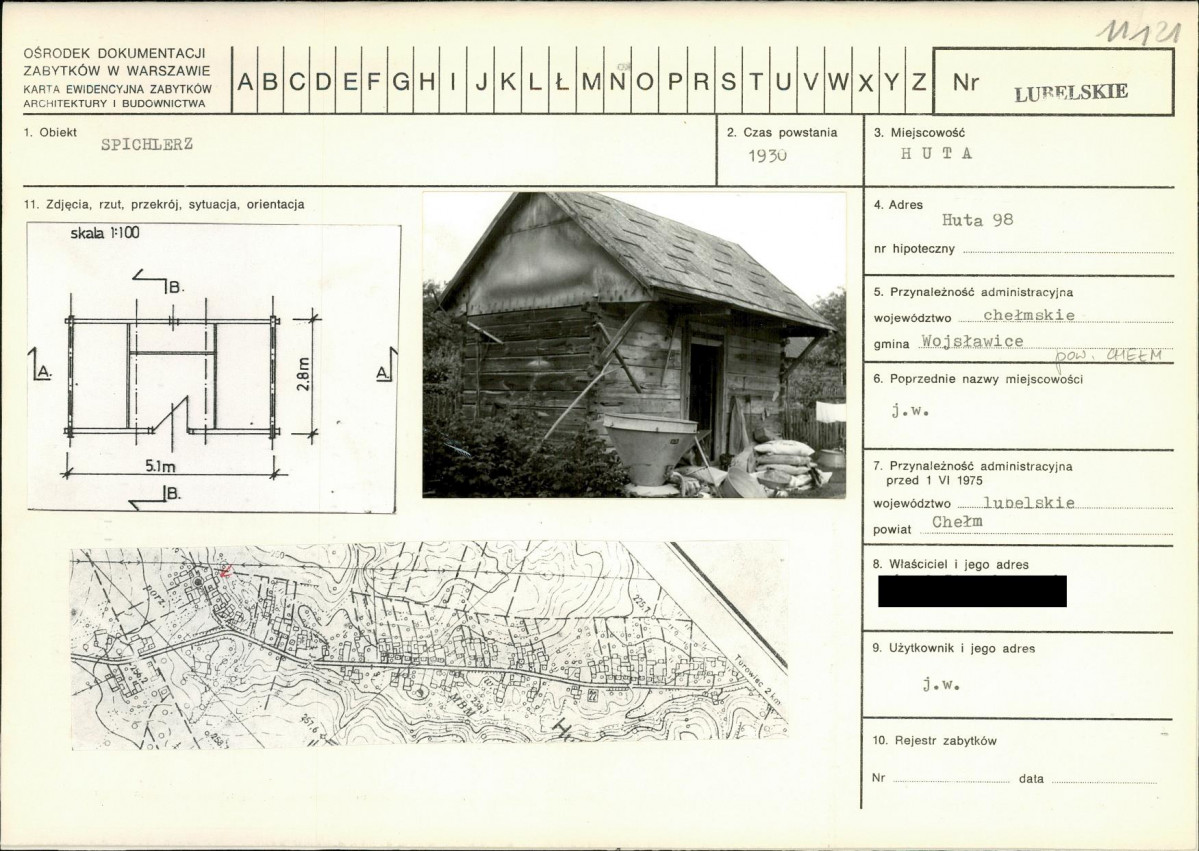 11121
OŚRODEK DOKUMENTACJI
ZABYTKÓW W WARSZAWIE
KARTA EWIDENCYJNA ZABYTKÓW
ARCHITEKTURY I BUDOWNICTWA
A B C D E F G H I J K L Ł M N O P R S T U V W X Y Z
Nr LUBELSKIE
1. Obiekt
SPICHLERZ
2. Czas powstania
1930
3. Miejscowość
H U T A
11. Zdjęcia, rzut, przekrój, sytuacja, orientacja
skala 1:100
B.
A.
A.
2.8m
5.1m
B.
4. Adres
Huta 98
nr hipoteczny
5. Przynależność administracyjna
województwo chełmskie
gmina Wojsławice
pow. CHEŁM
6. Poprzednie nazwy miejscowości
j.w.
7. Przynależność administracyjna
przed 1 VI 1975
województwo lubelskie
powiat Chełm
8. Właściciel i jego adres
9. Użytkownik i jego adres
j.w.
10. Rejestr zabytków
Nr data
250
porz.
225,7
256,2
Turowiec 2 km
MBM
257,6
258,